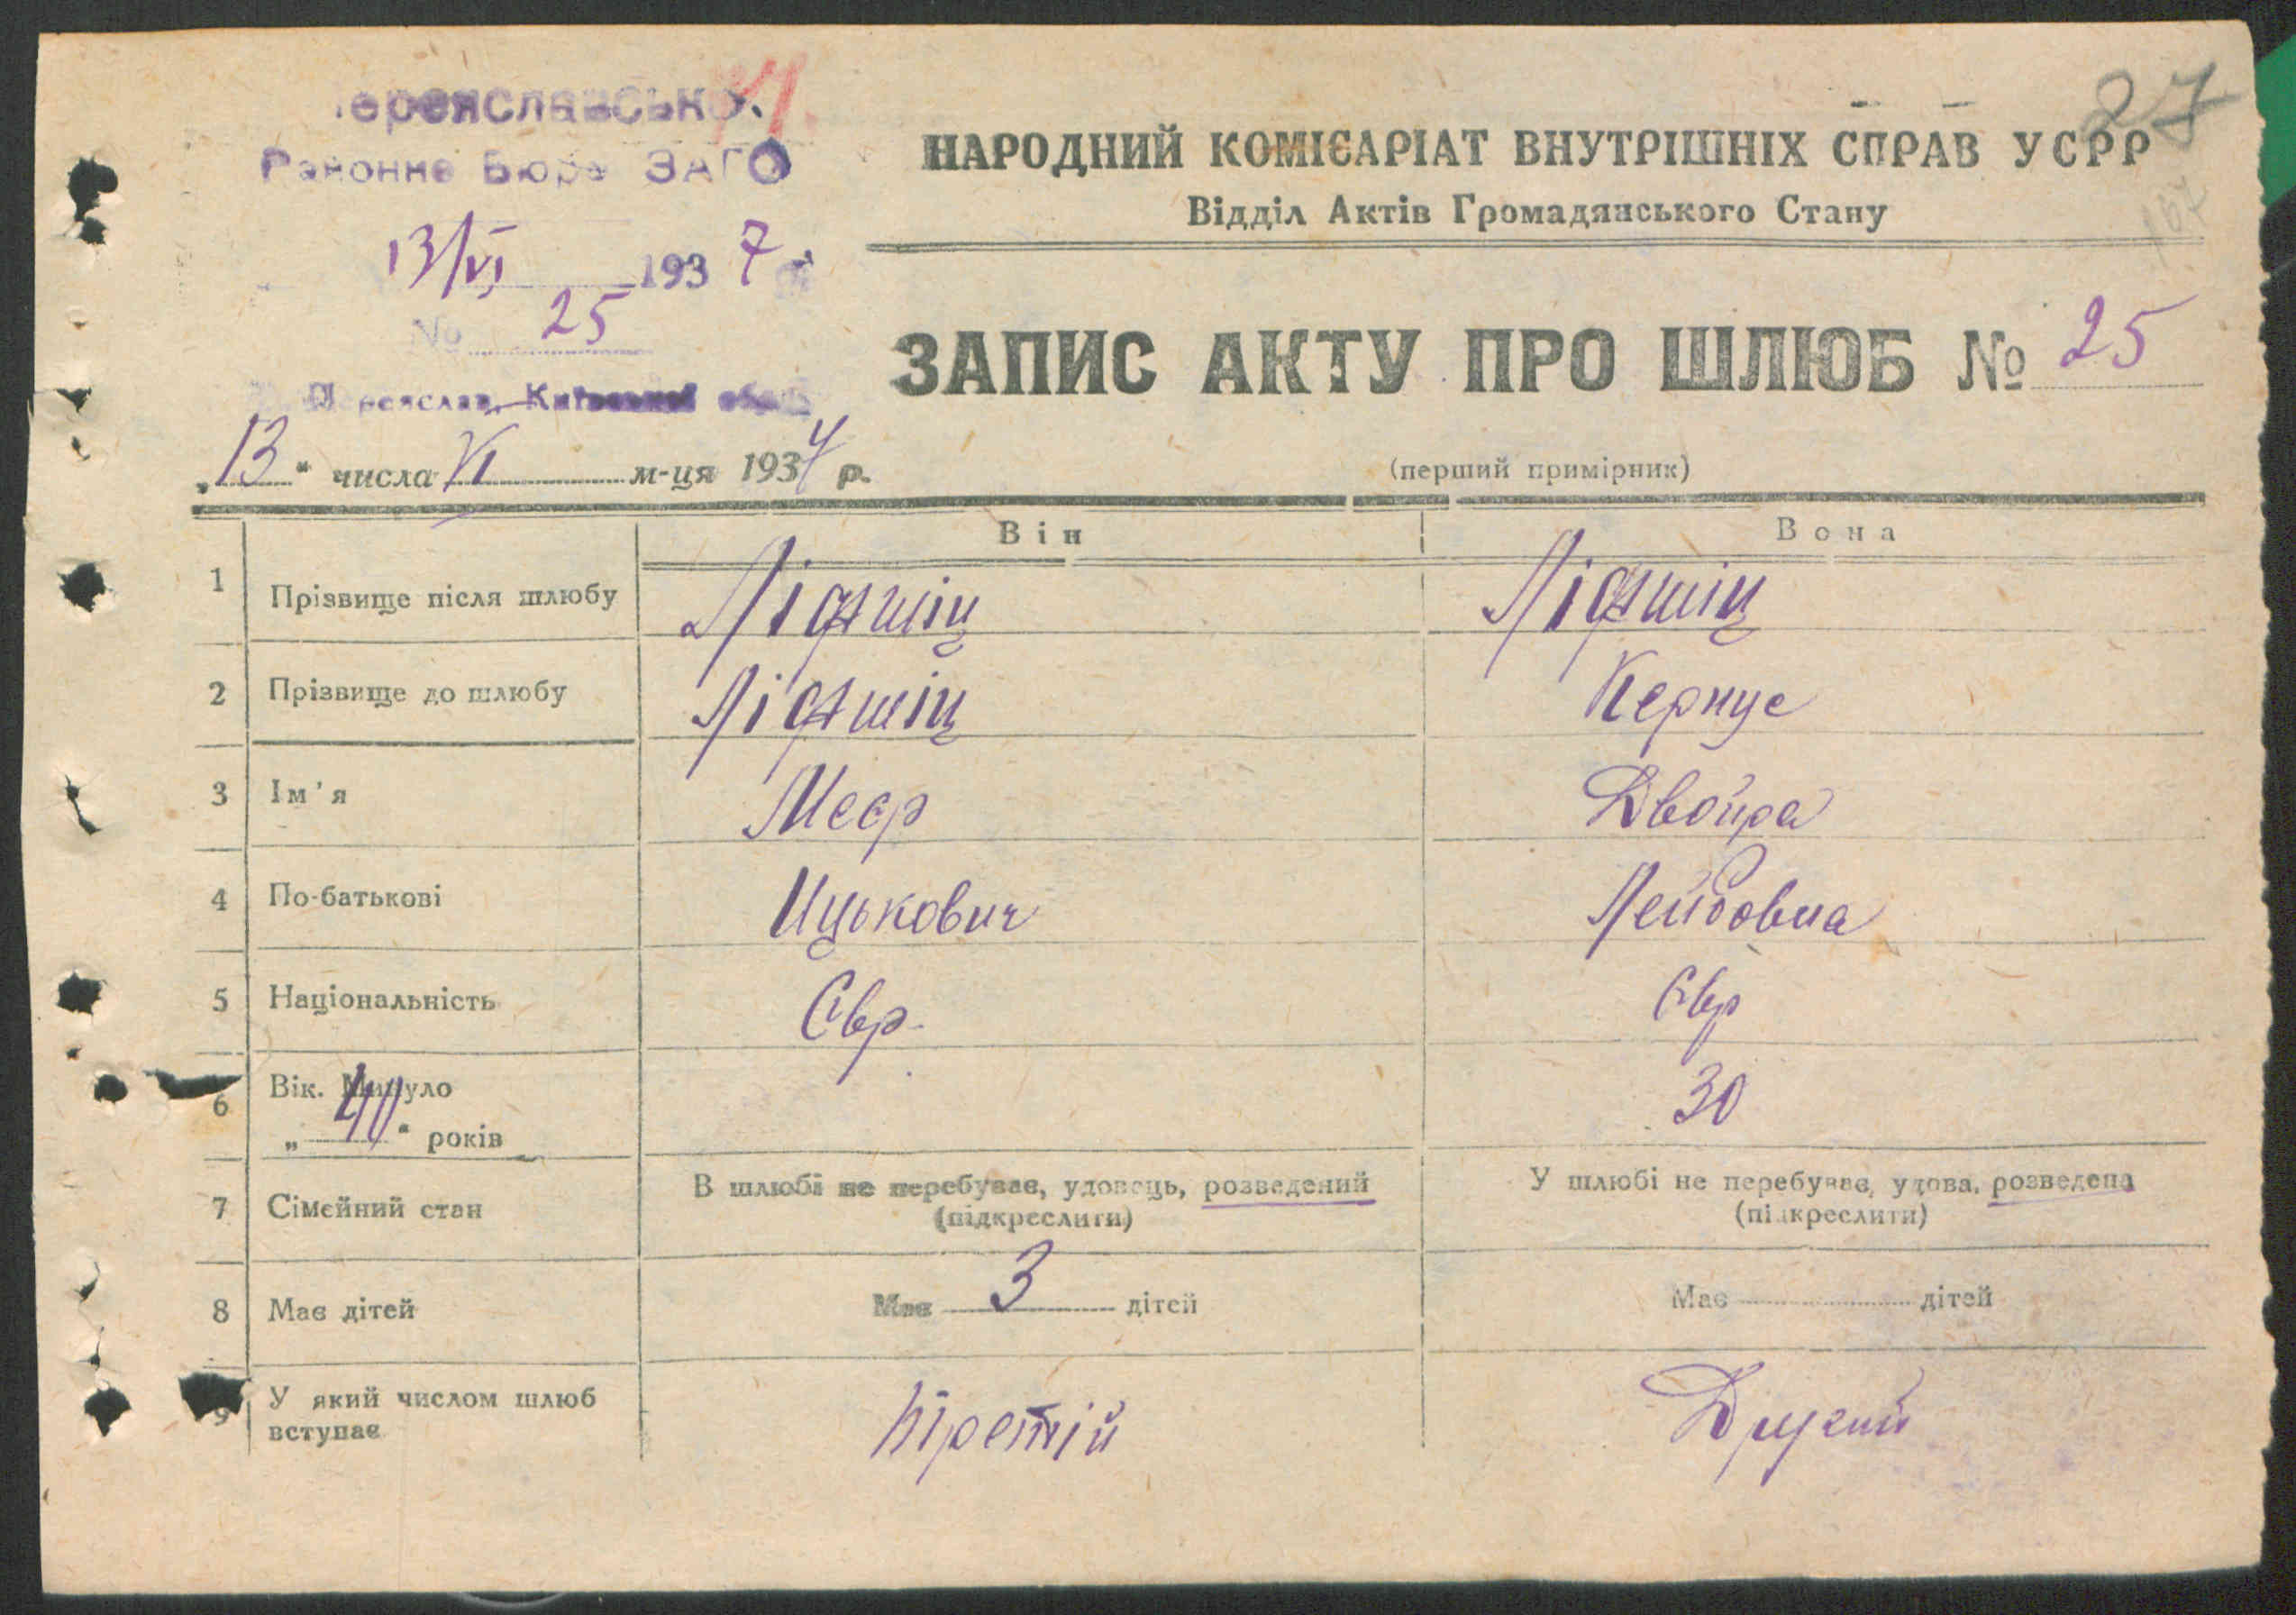 Переяславсько.
Районне Бюро ЗАГС
27
13/VI 1937
№ 25
Переяслав, Київської
НАРОДНИЙ КОМІСАРІАТ ВНУТРІШНІХ СПРАВ УСРР
Відділ Актів Громадянського Стану
167
ЗАПИС АКТУ ПРО ШЛЮБ № 25
„13“ числа VI м-ця 1937 р.
(перший примірник)
Він
Вона
1 Прізвище після шлюбу Ліфшіц Ліфшіц
2 Прізвище до шлюбу Ліфшіц Кернус
3 Ім'я Меєр Двойра
4 По-батькові Ицькович Лейбовна
5 Національність Євр. Євр
6 Вік. Минуло 30
„40“ років
7 Сімейний стан В шлюбі не перебуває, удовець, розведений У шлюбі не перебуває, удова, розведена
(підкреслити) (підкреслити)
8 Має дітей Має 3 дітей Має дітей
9 У який числом шлюб
вступає
Третій Другий